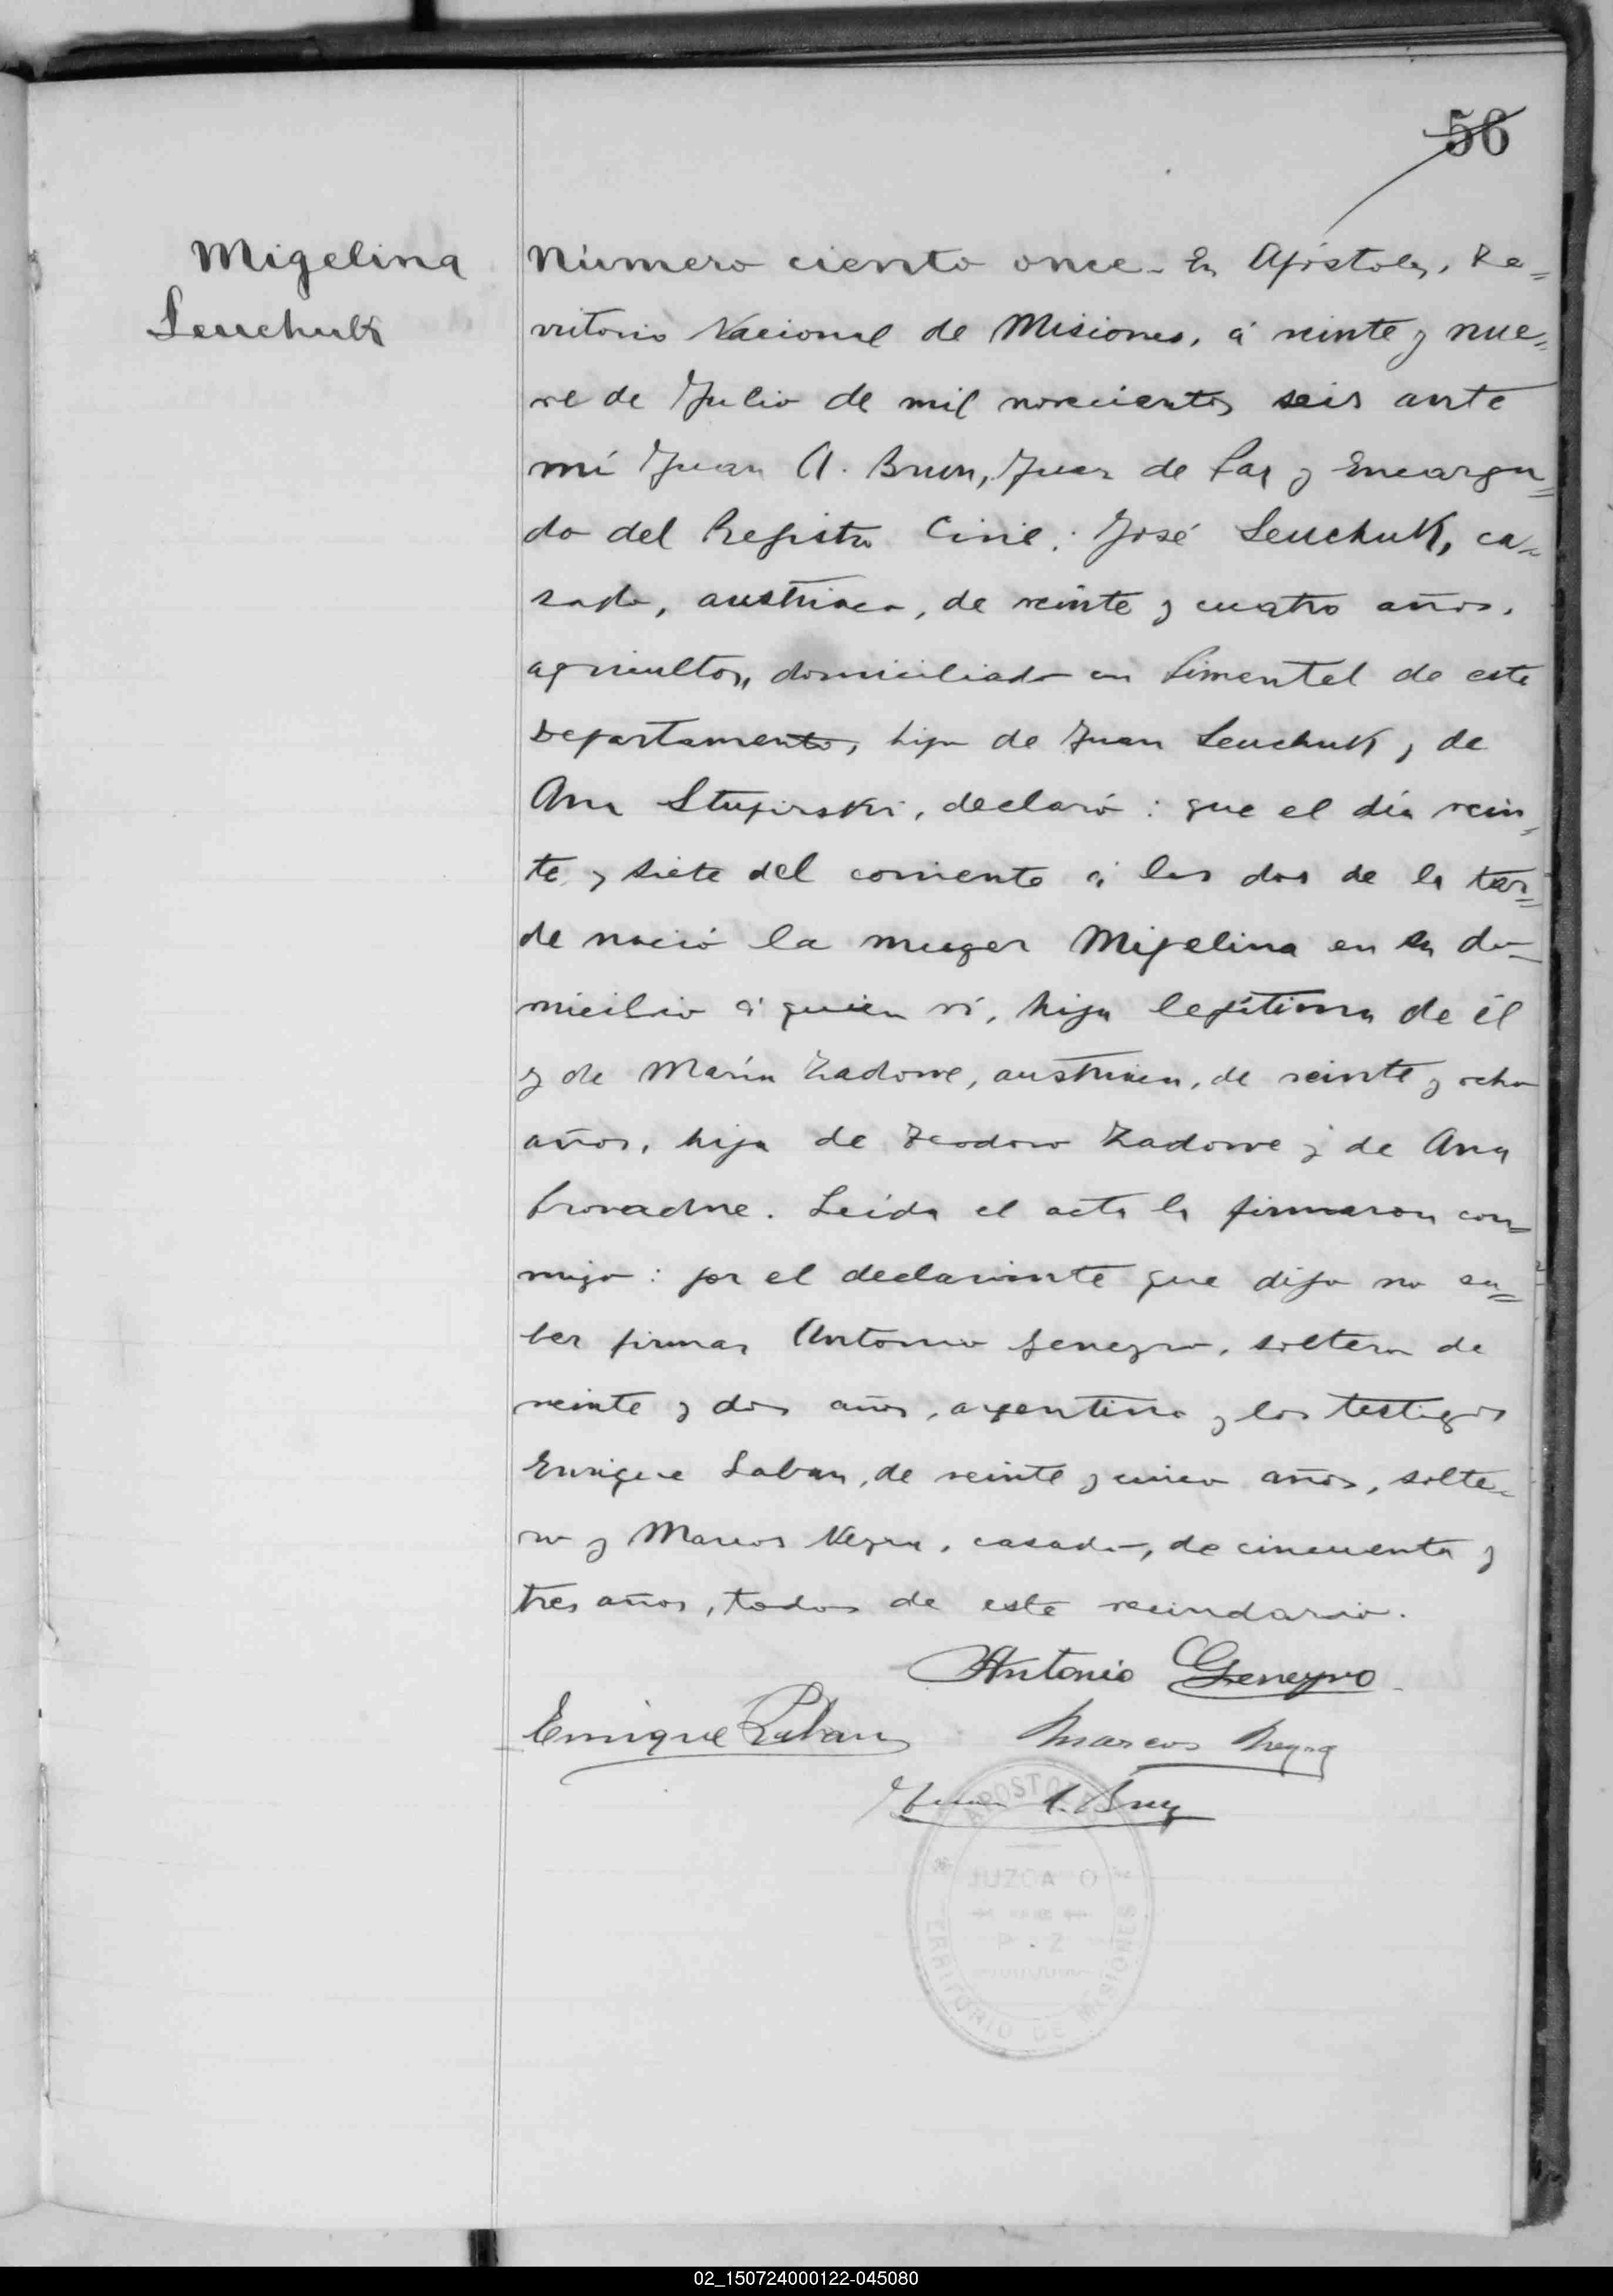 56
Migelina
Leuchuk
Número ciento once. En Apóstoles, Te=
rritorio Nacional de Misiones, á veinte y nue=
ve de Julio de mil novecientos seis ante
mí Juan A. Brun, Juez de Paz y Encarga=
do del Registro Civil: José Leuchuk, ca=
sado, austriaco, de veinte y cuatro años,
agricultor, domiciliado en Pimentel de este
Departamento, hijo de Juan Leuchuk y de
Ana Stupirski, declaró: que el día vein=
te y siete del corriente á las dos de la tar=
de nació la muger Migelina en su do=
micilio á quien ví, hija legítima de él
y de María Zadorve, austriaca, de veinte y ocho
años, hija de Teodoro Zadorve y de Ana
Leida el acta la firmaron con=
migo: por el declarante que dijo no sa=
ber firmar Antonio Geneyro, soltero de
veinte y dos años, argentino y los testigos
Enrique Laban, de veinte y cinco años, solte=
ro y Marcos Neyra, casado, de cincuenta y
tres años, todos de este vecindario.
Antonio Geneyro
Enrique Laban Marcos Neyra
Juan A. Brun
APOSTOLES
JUZGADO
P Z
TERRITORIO DE MISIONES
02_150724000122-045080